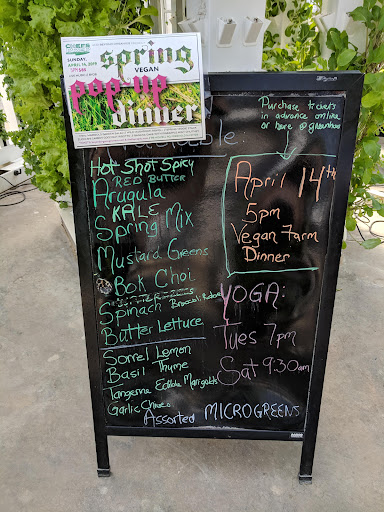 CHEFS
SUNDAY,
APRIL 14, 2019
spring
VEGAN
pop-up
dinner
Purchase tickets
in advance online
or here @ greenhouse
Hot Shot Spicy
RED BUTTER
Arugula
KALE
Spring Mix
Mustard Greens
Bok Choi
Spinach
Butter Lettuce
Sorrel Lemon
Basil Thyme
Tangerine Edible Marigolds
Garlic Chives
Assorted MICROGREENS
April 14th
5pm
Vegan Farm
Dinner
YOGA:
Tues 7pm
Sat 9:30am